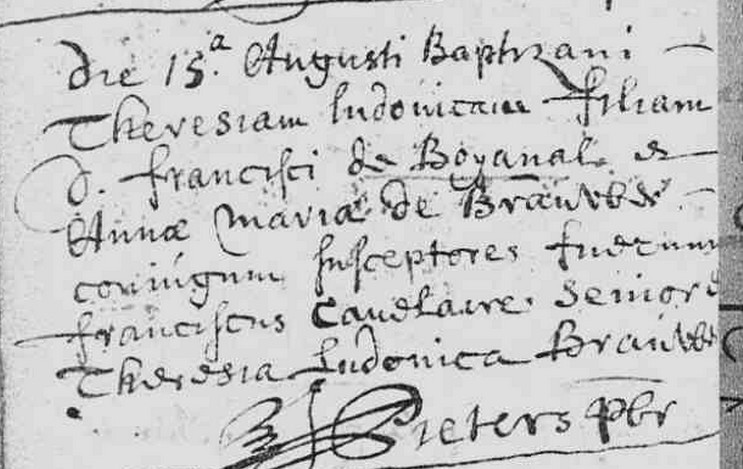 die 15.a Augusti Baptizavi
Theresiam ludovicam filiam
d. francisci de Boyanal. et
Annæ Mariæ de
coniugum susceptores fuerunt
franciscus Caudlaire. Senior et
Theresia Ludovica
Pieters pbr